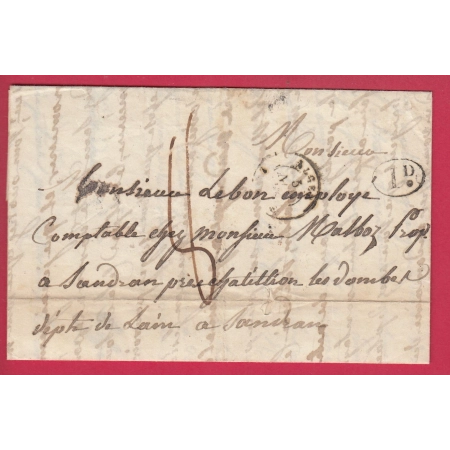 Monsieur
ALGER
1 D.
Monsieur Lebon employe
Comptable chez monsieur Malboz Prop
a Sandran près chatillion les dombes
dépt. de Lain a Sandran